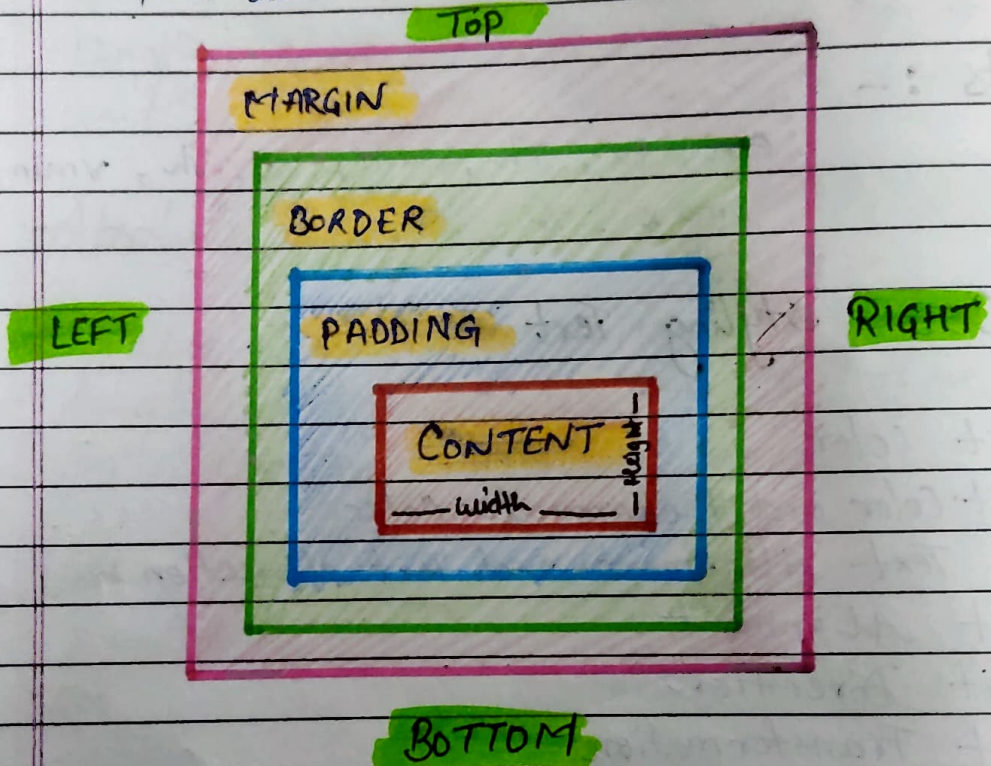 TOP
MARGIN
BORDER
LEFT
PADDING
RIGHT
CONTENT
Height
width
BOTTOM